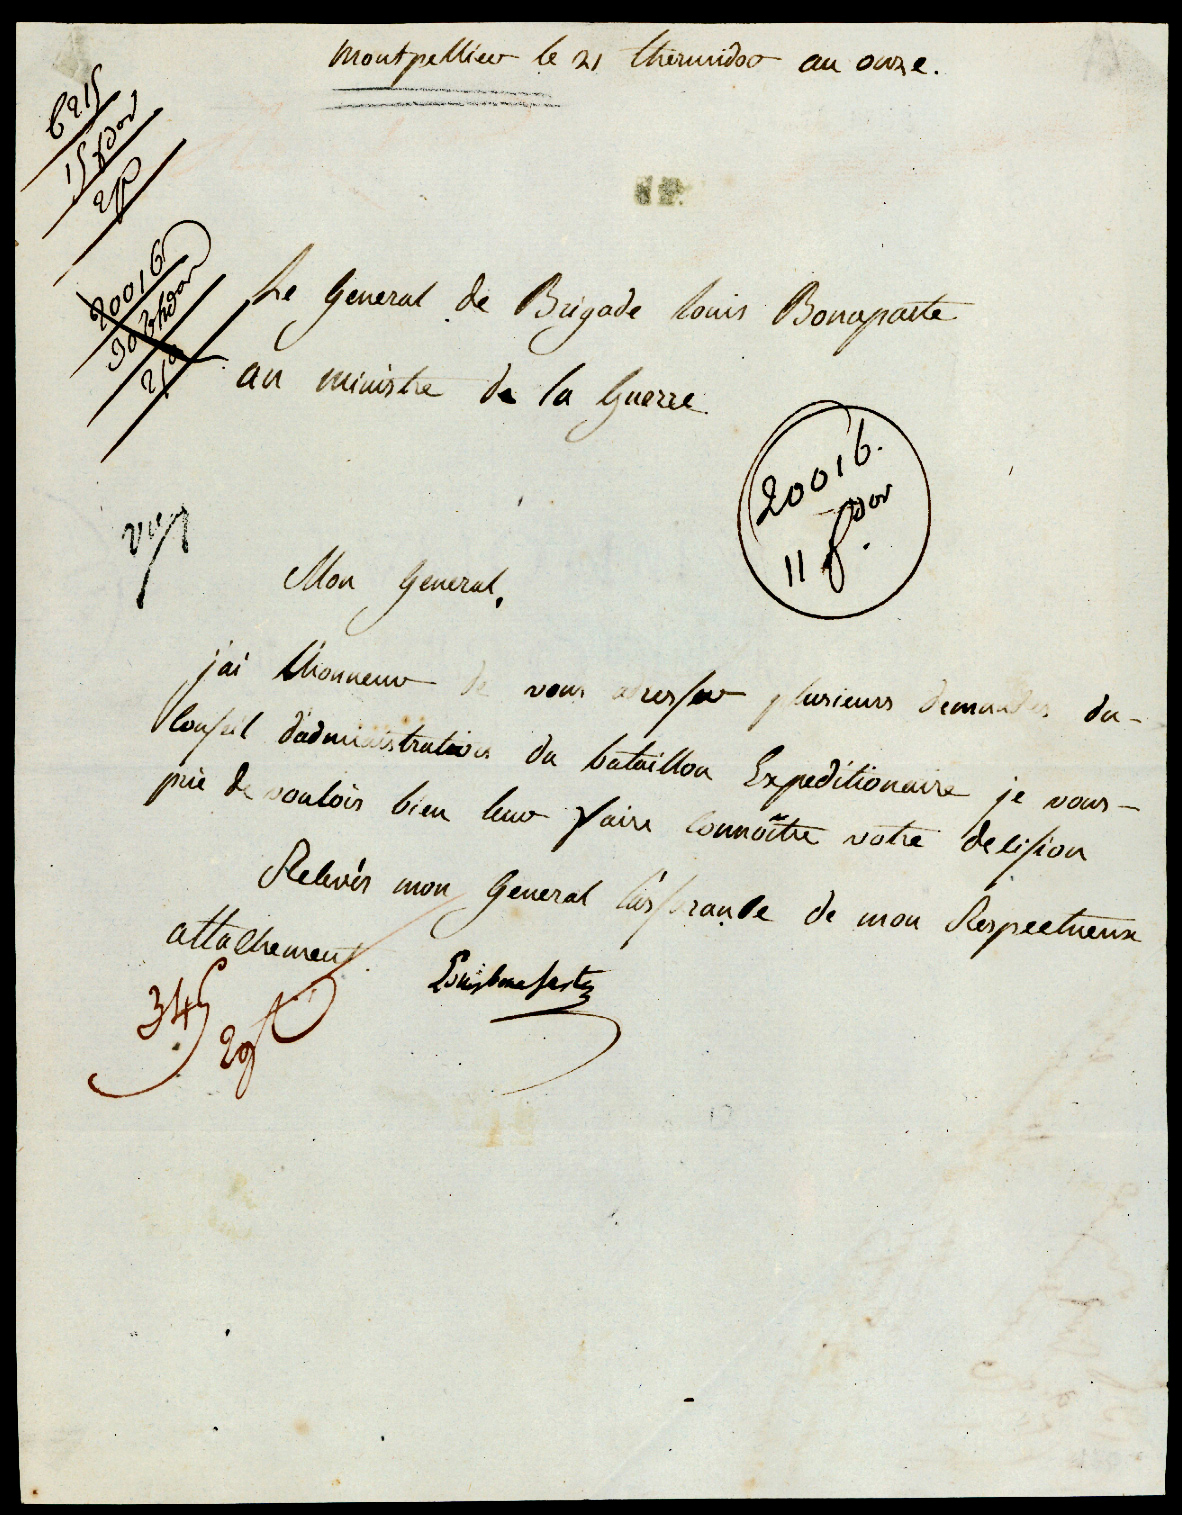 Montpellier le 21 thermidor an onze.
6215
15 fdor
20016
Le General de Brigade Louis Bonaparte
au ministre de la Guerre
20016.
11 fdor.
Mon General,
j'ai l'honneur de vous adresser plusieurs demandes du-
Conseil d'administration du bataillon Expeditionaire je vous-
prie de vouloir bien leur faire connoître votre decision
Recevés mon General l'assurance de mon Respectueux
attachement.
Louis bonaparte
345
29